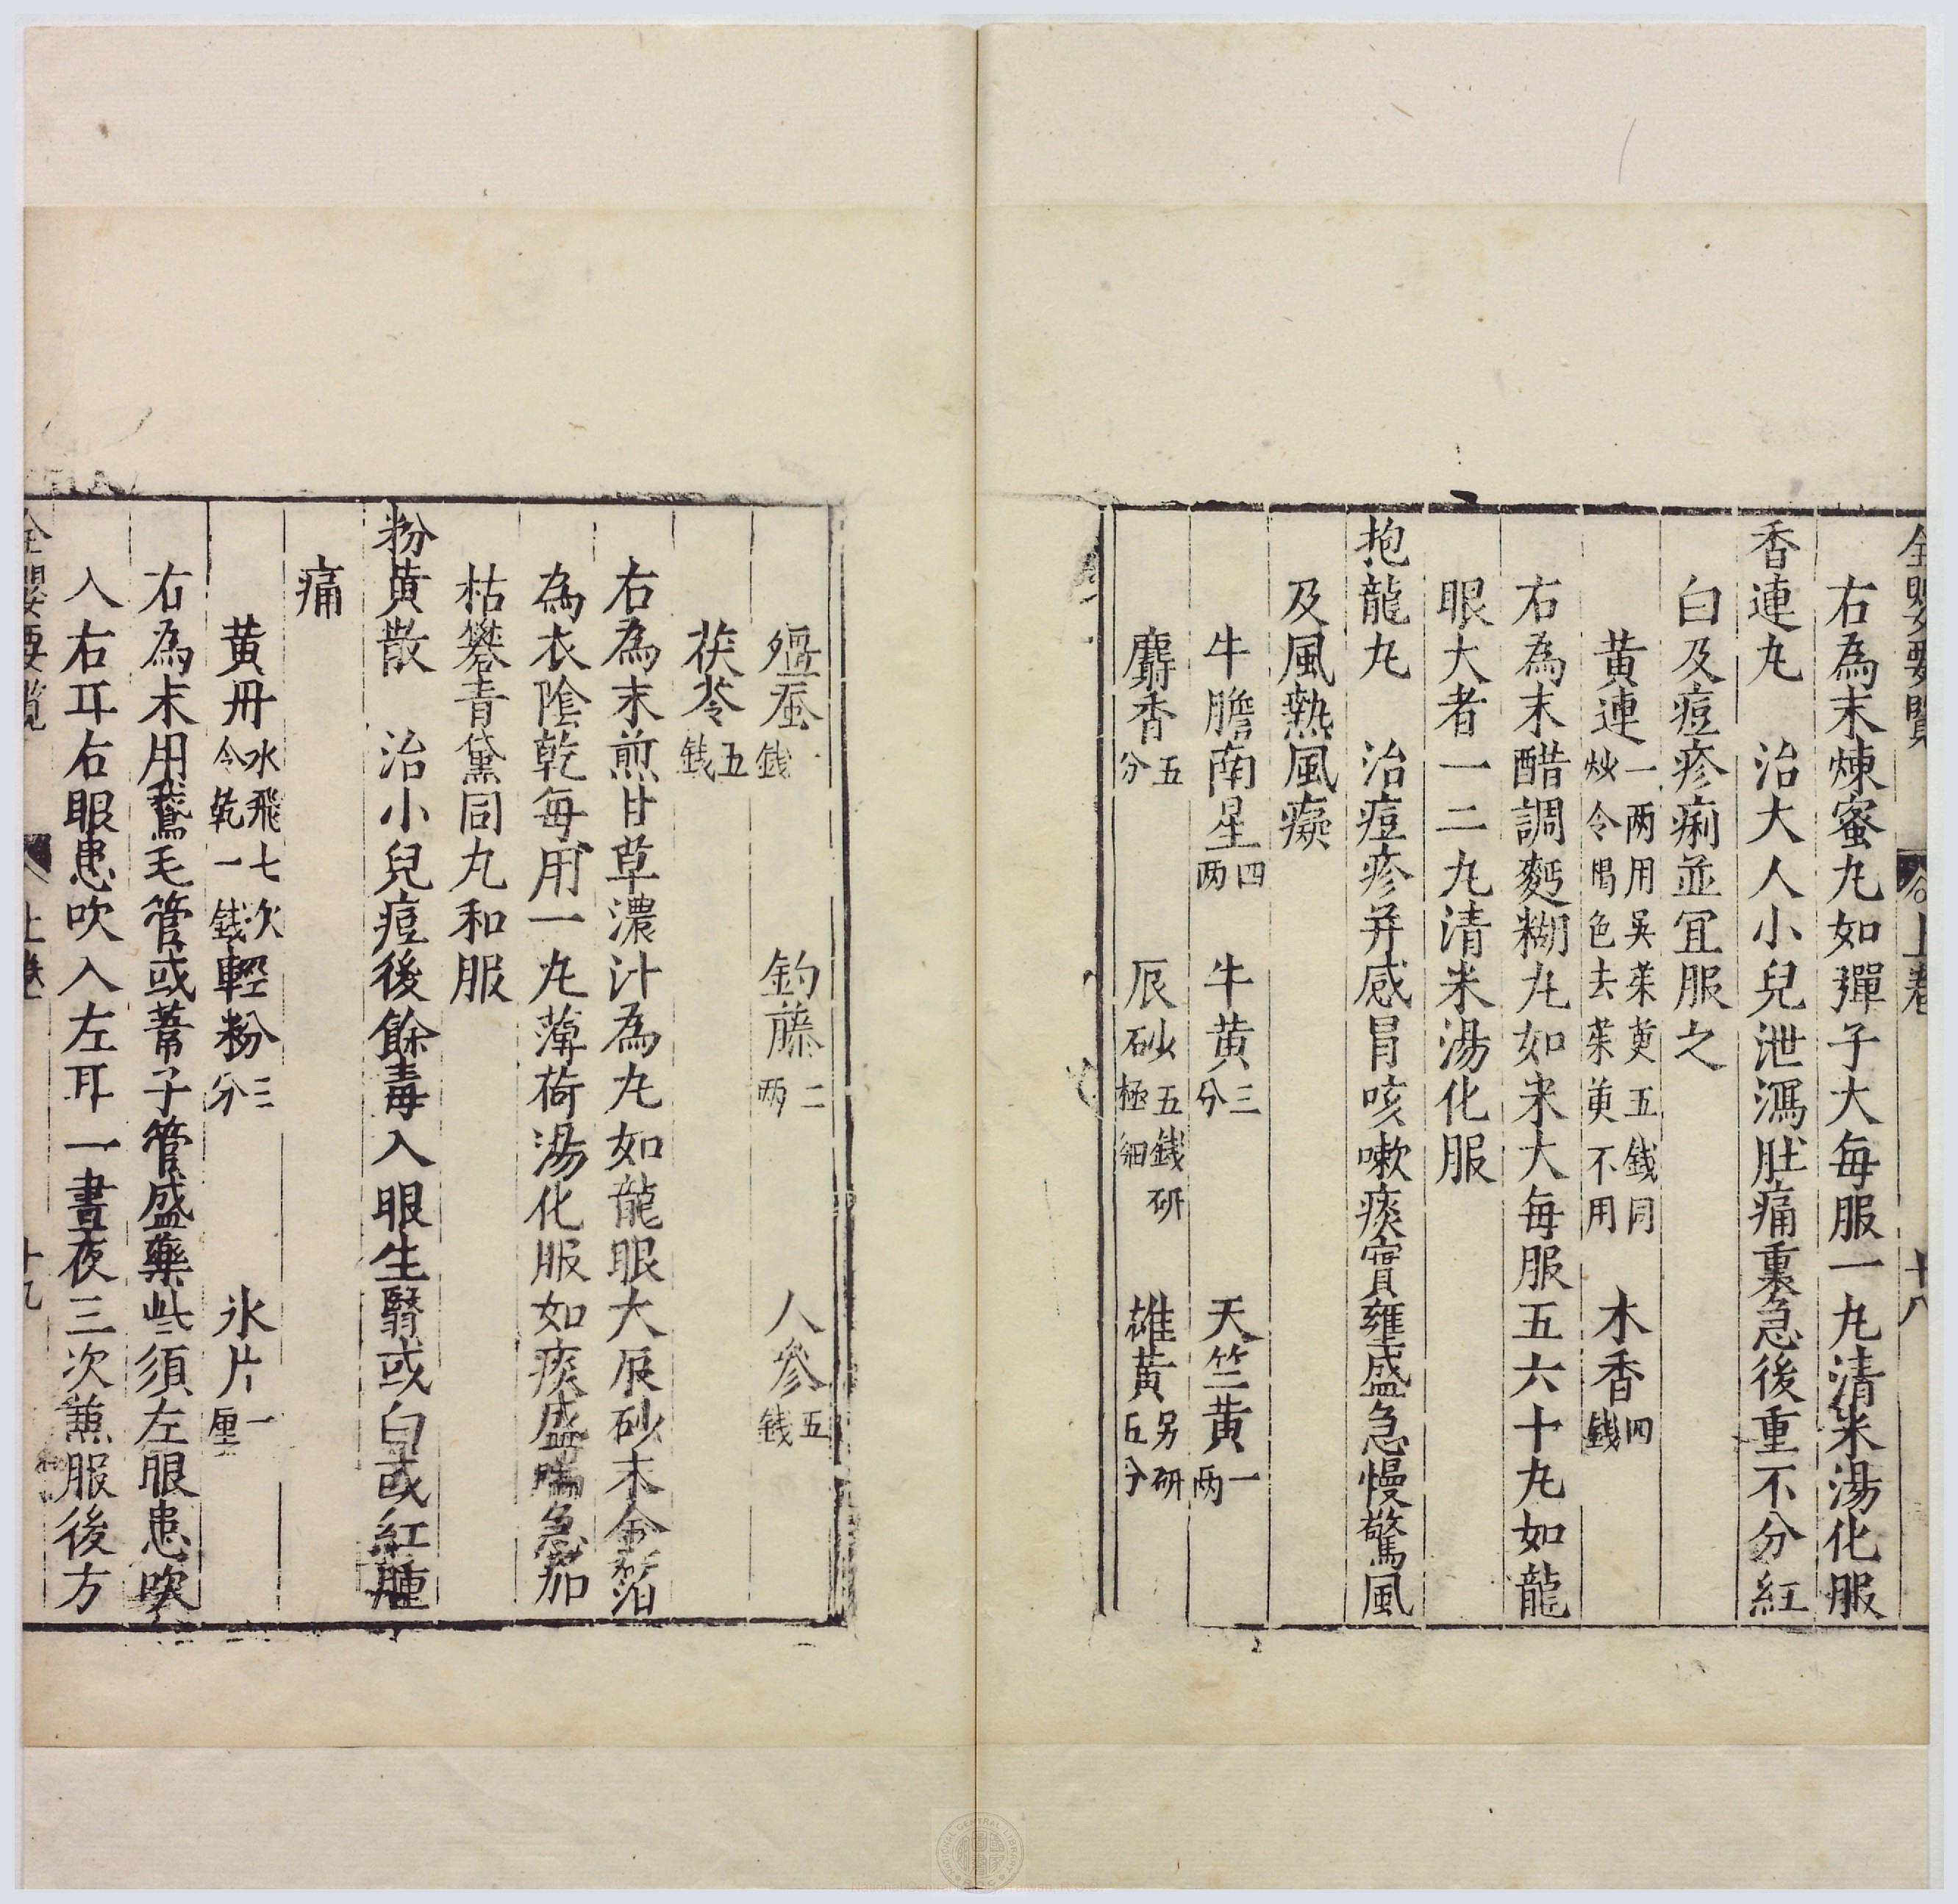 全嬰要覽 上卷 十八
右為末煉蜜丸如彈子大每服一丸清米湯化服
香連丸 治大人小兒泄瀉肚痛裏急後重不分紅
白及痘疹痢並宜服之
黃連一两用吳茱萸五錢同炒令焬色去茱萸不用 木香四錢
右為末醋調麪糊丸如米大每服五六十丸如龍
眼大者一二丸清米湯化服
抱龍丸 治痘疹并感冒咳嗽痰實壅盛急慢驚風
及風熱風癡
牛膽南星四两 牛黃三分 天竺黃一两
麝香五分 辰砂五錢研極細 雄黃另研五分
殭蚕一錢 釣藤二两 人參五錢
茯苓五錢
右為末煎甘草濃汁為丸如龍眼大辰砂末金箔
為衣陰乾每用一丸薄荷湯化服如痰盛喘急加
枯礬青黛同丸和服
粉黃散 治小兒痘後餘毒入眼生翳或白或紅腫
痛
黃丹水飛七次令乾一錢 輕粉三分 氷片一厘
右為末用鵞毛管或葦子管盛藥些須左眼患吹
入右耳右眼患吹入左耳一晝夜三次兼服後方
全嬰要覽 上卷 十九